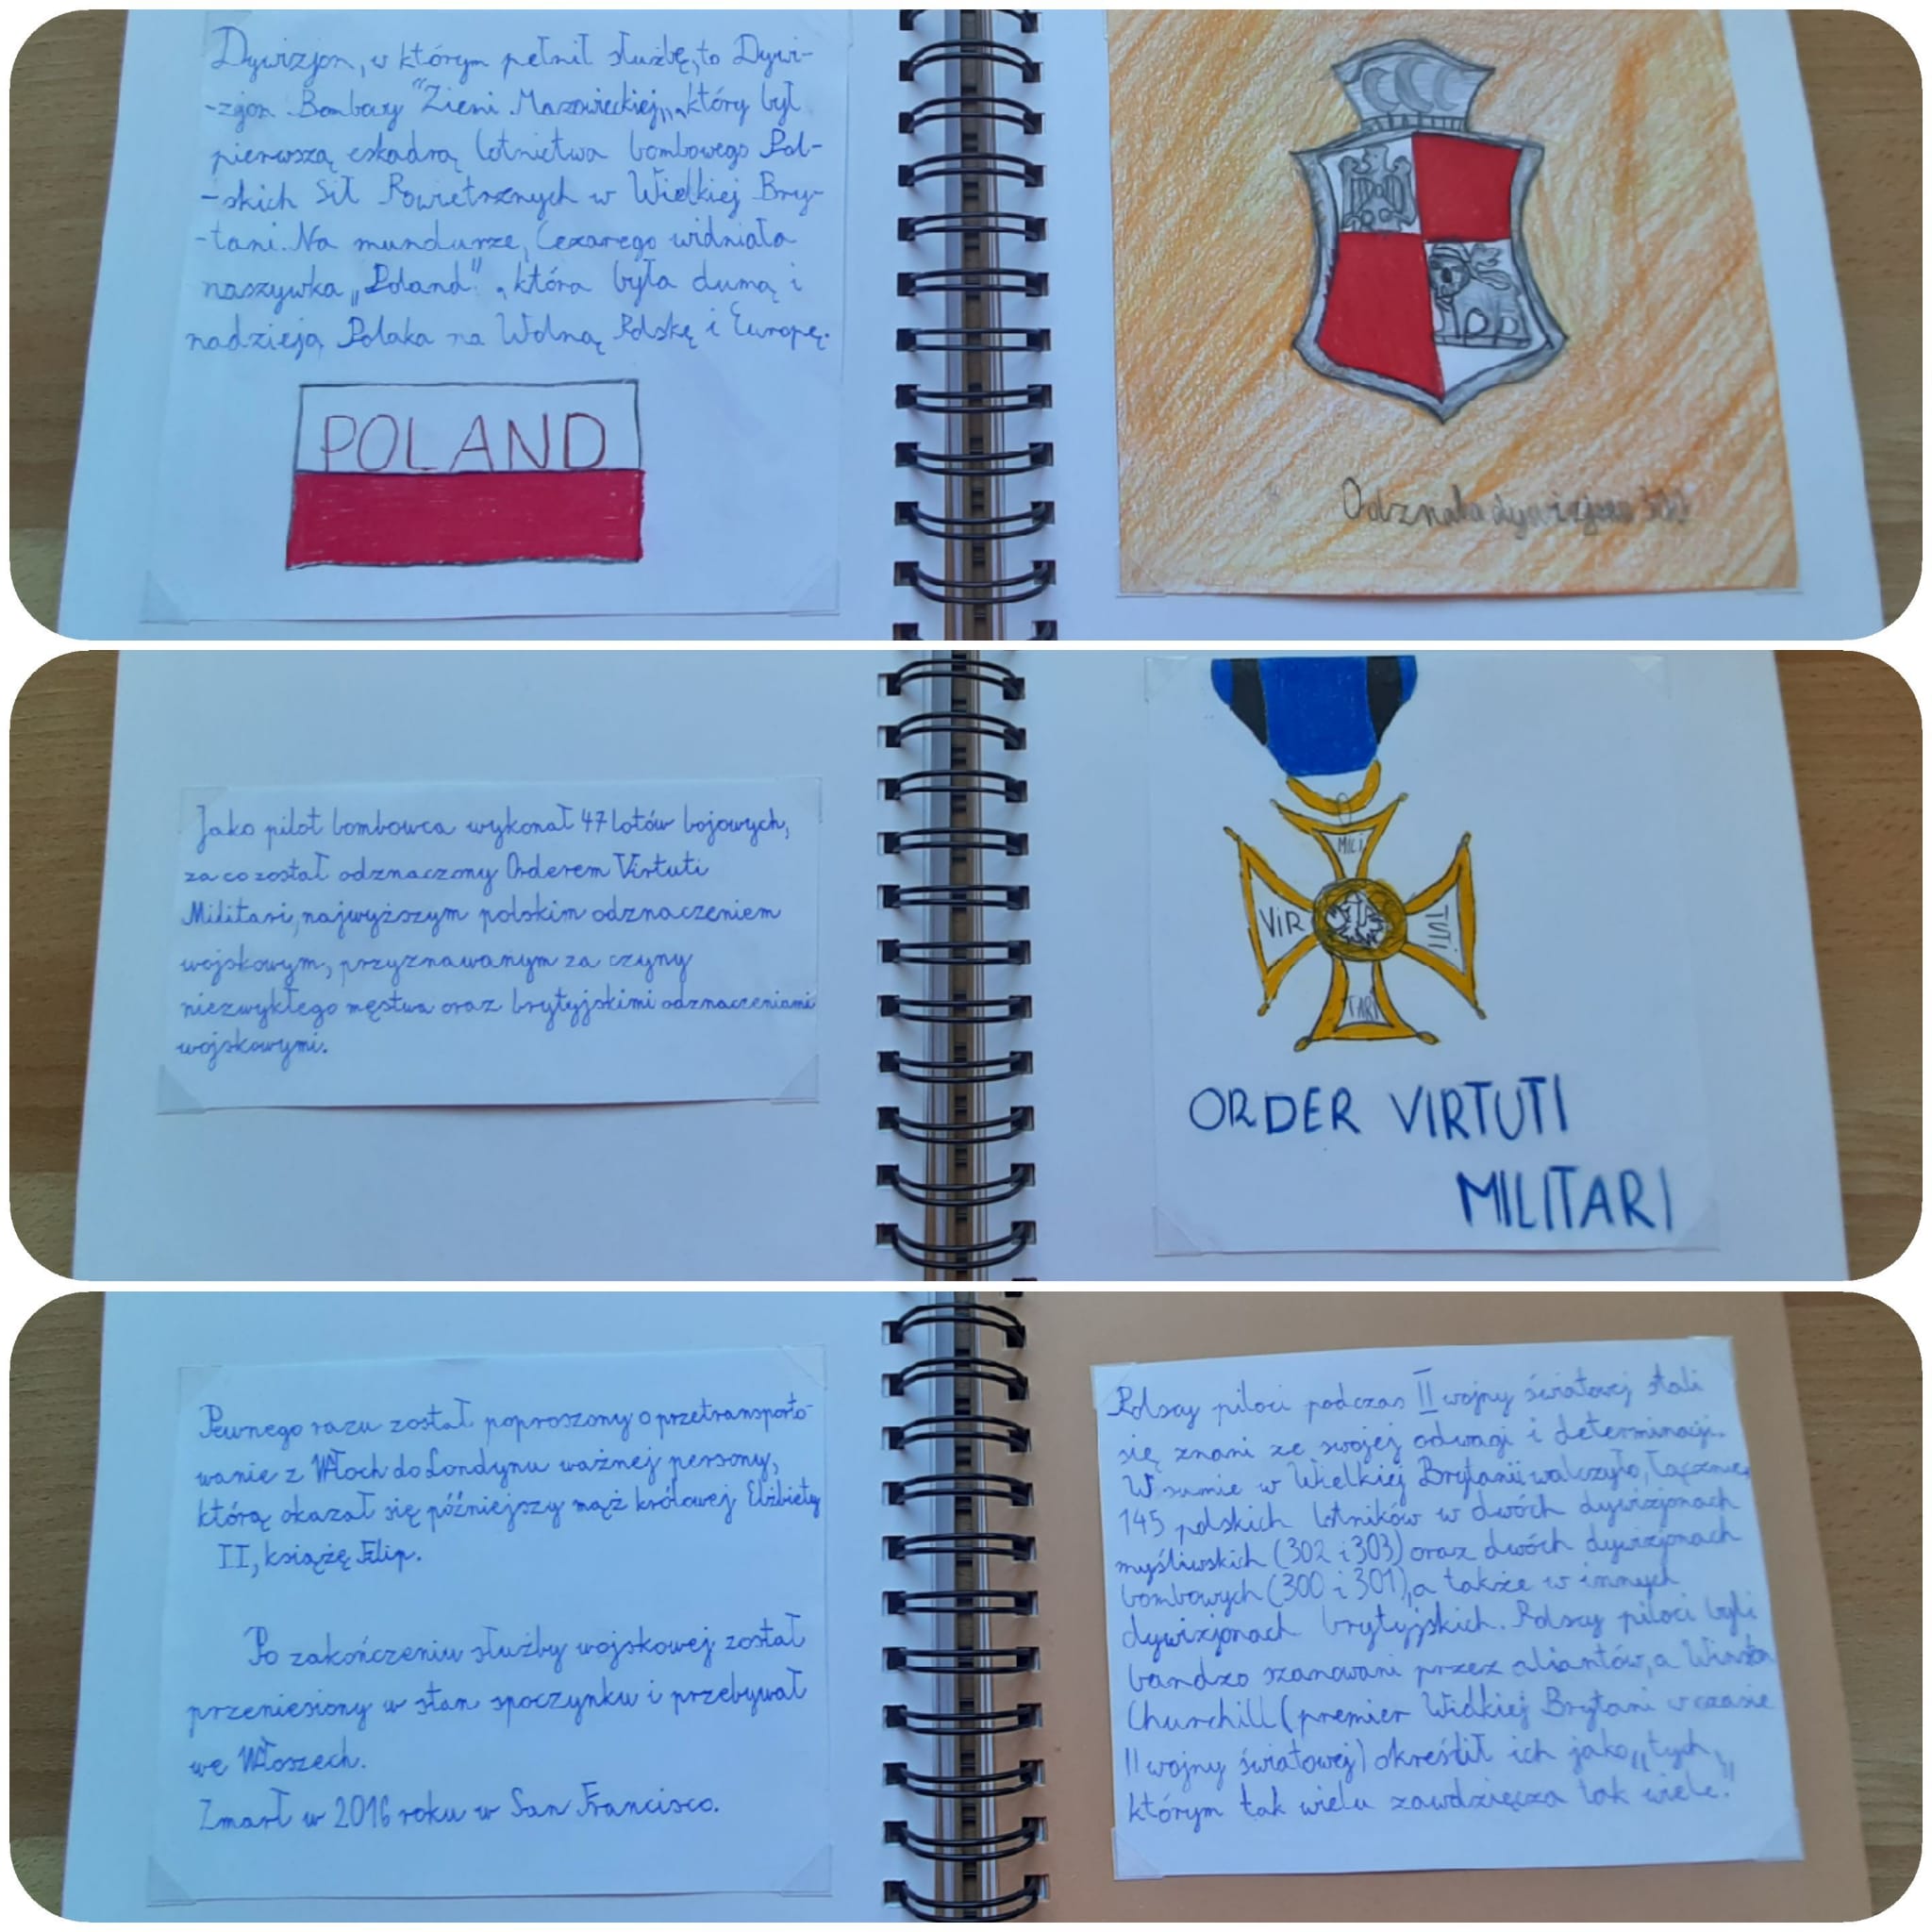 Dywizjon, w którym pełnił służbę, to Dywi-
-zjon Bombowy "Ziemi Mazowieckiej,, który był
pierwszą eskadrą lotnictwa bombowego Pol-
-skich Sił Powietrznych w Wielkiej Bry-
-tani. Na mundurze, Cezarego widniała
naszywka „Poland" , która była dumą i
nadzieją Polaka na Wolną Polskę i Europę.
POLAND
Odznaka dywizjonu 300
Jako pilot bombowca wykonał 47 lotów bojowych,
za co został odznaczony Orderem Virtuti
Militari, najwyższym polskim odznaczeniem
wojskowym, przyznawanym za czyny
niezwykłego męstwa oraz brytyjskimi odznaczeniami
wojskowymi.
MILI
VIR TUTI
TARI
ORDER VIRTUTI
MILITARI
Pewnego razu został poproszony o przetransporto-
wanie z Włoch do Londynu ważnej persony,
którą okazał się późniejszy mąż królowej Elżbiety
II, książę Filip.
Po zakończeniu służby wojskowej został
przeniesiony w stan spoczynku i przebywał
we Włoszech.
Zmarł w 2016 roku w San Francisco.
Polscy piloci podczas II wojny światowej stali
się znani ze swojej odwagi i determinacji.
W sumie w Wielkiej Brytanii walczyło, łącznie,
145 polskich lotników w dwóch dywizjonach
myśliwskich (302 i 303) oraz dwóch dywizjonach
bombowych (300 i 301), a także w innych
dywizjonach brytyjskich. Polscy piloci byli
bardzo szanowani przez aliantów, a Winston
Churchill (premier Wielkiej Brytani w czasie
II wojny światowej) określił ich jako „tych,
którym tak wielu zawdzięcza tak wiele."